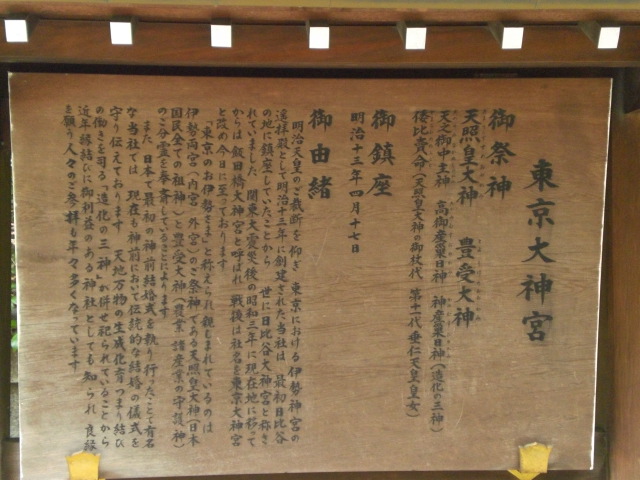 東京大神宮
御祭神
天照皇大神　豊受大神
天之御中主神　高御産巣日神　神産巣日神（造化の三神）
倭比賣命（天照皇大神の御杖代　第十一代垂仁天皇皇女）
御鎮座
明治十三年四月十七日
御由緒
明治天皇のご裁断を仰ぎ　東京における伊勢神宮の
遥拝殿として明治十三年に創建された当社は　最初日比谷
の地に鎮座していたことから　世に日比谷大神宮と称さ
れていました　関東大震災後の昭和三年に現在地に移って
からは飯田橋大神宮と呼ばれ　戦後は社名を東京大神宮
と改め今日に至っております
「東京のお伊勢さま」と称えられ親しまれているのは
伊勢両宮（内宮　外宮）のご祭神である天照皇大神（日本
国民全ての祖神）と豊受大神（農業・諸産業の守護神）
のご分霊を奉斎していることによります
また　日本で最初の神前結婚式を執り行ったことで有名
な当社では　現在も神前において伝統的な結婚の儀式を
守り伝えております　天地万物の生成化育つまり結び
の働きを司る「造化の三神」が併せ祀られていることから
近年縁結びに御利益のある神社としても知られ　良縁
を願う人々のご参拝も年々多くなっています